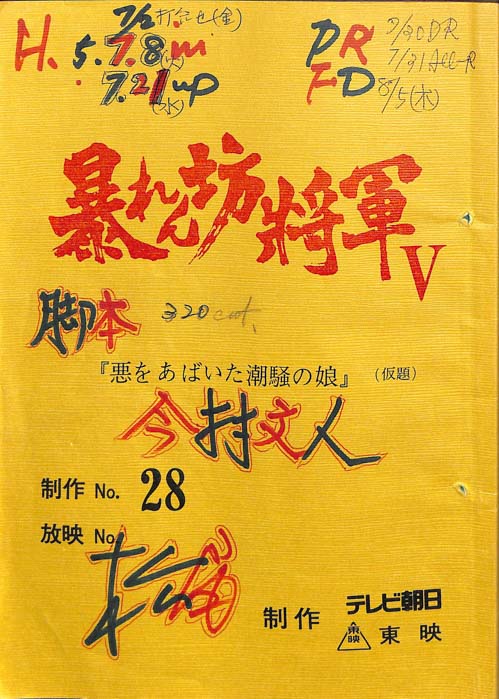 7/2 打合せ(金)
H. 5. 7. 8. in (火)
7. 21 up (水)
DR 7/30 DR
7/31 All-R
FD 8/5(木)
暴れん坊將軍
V
脚本 320 cut.
『悪をあばいた潮騒の娘』 (仮題)
今村文人
制作 No. 28
放映 No.
制作 テレビ朝日
東映 東映